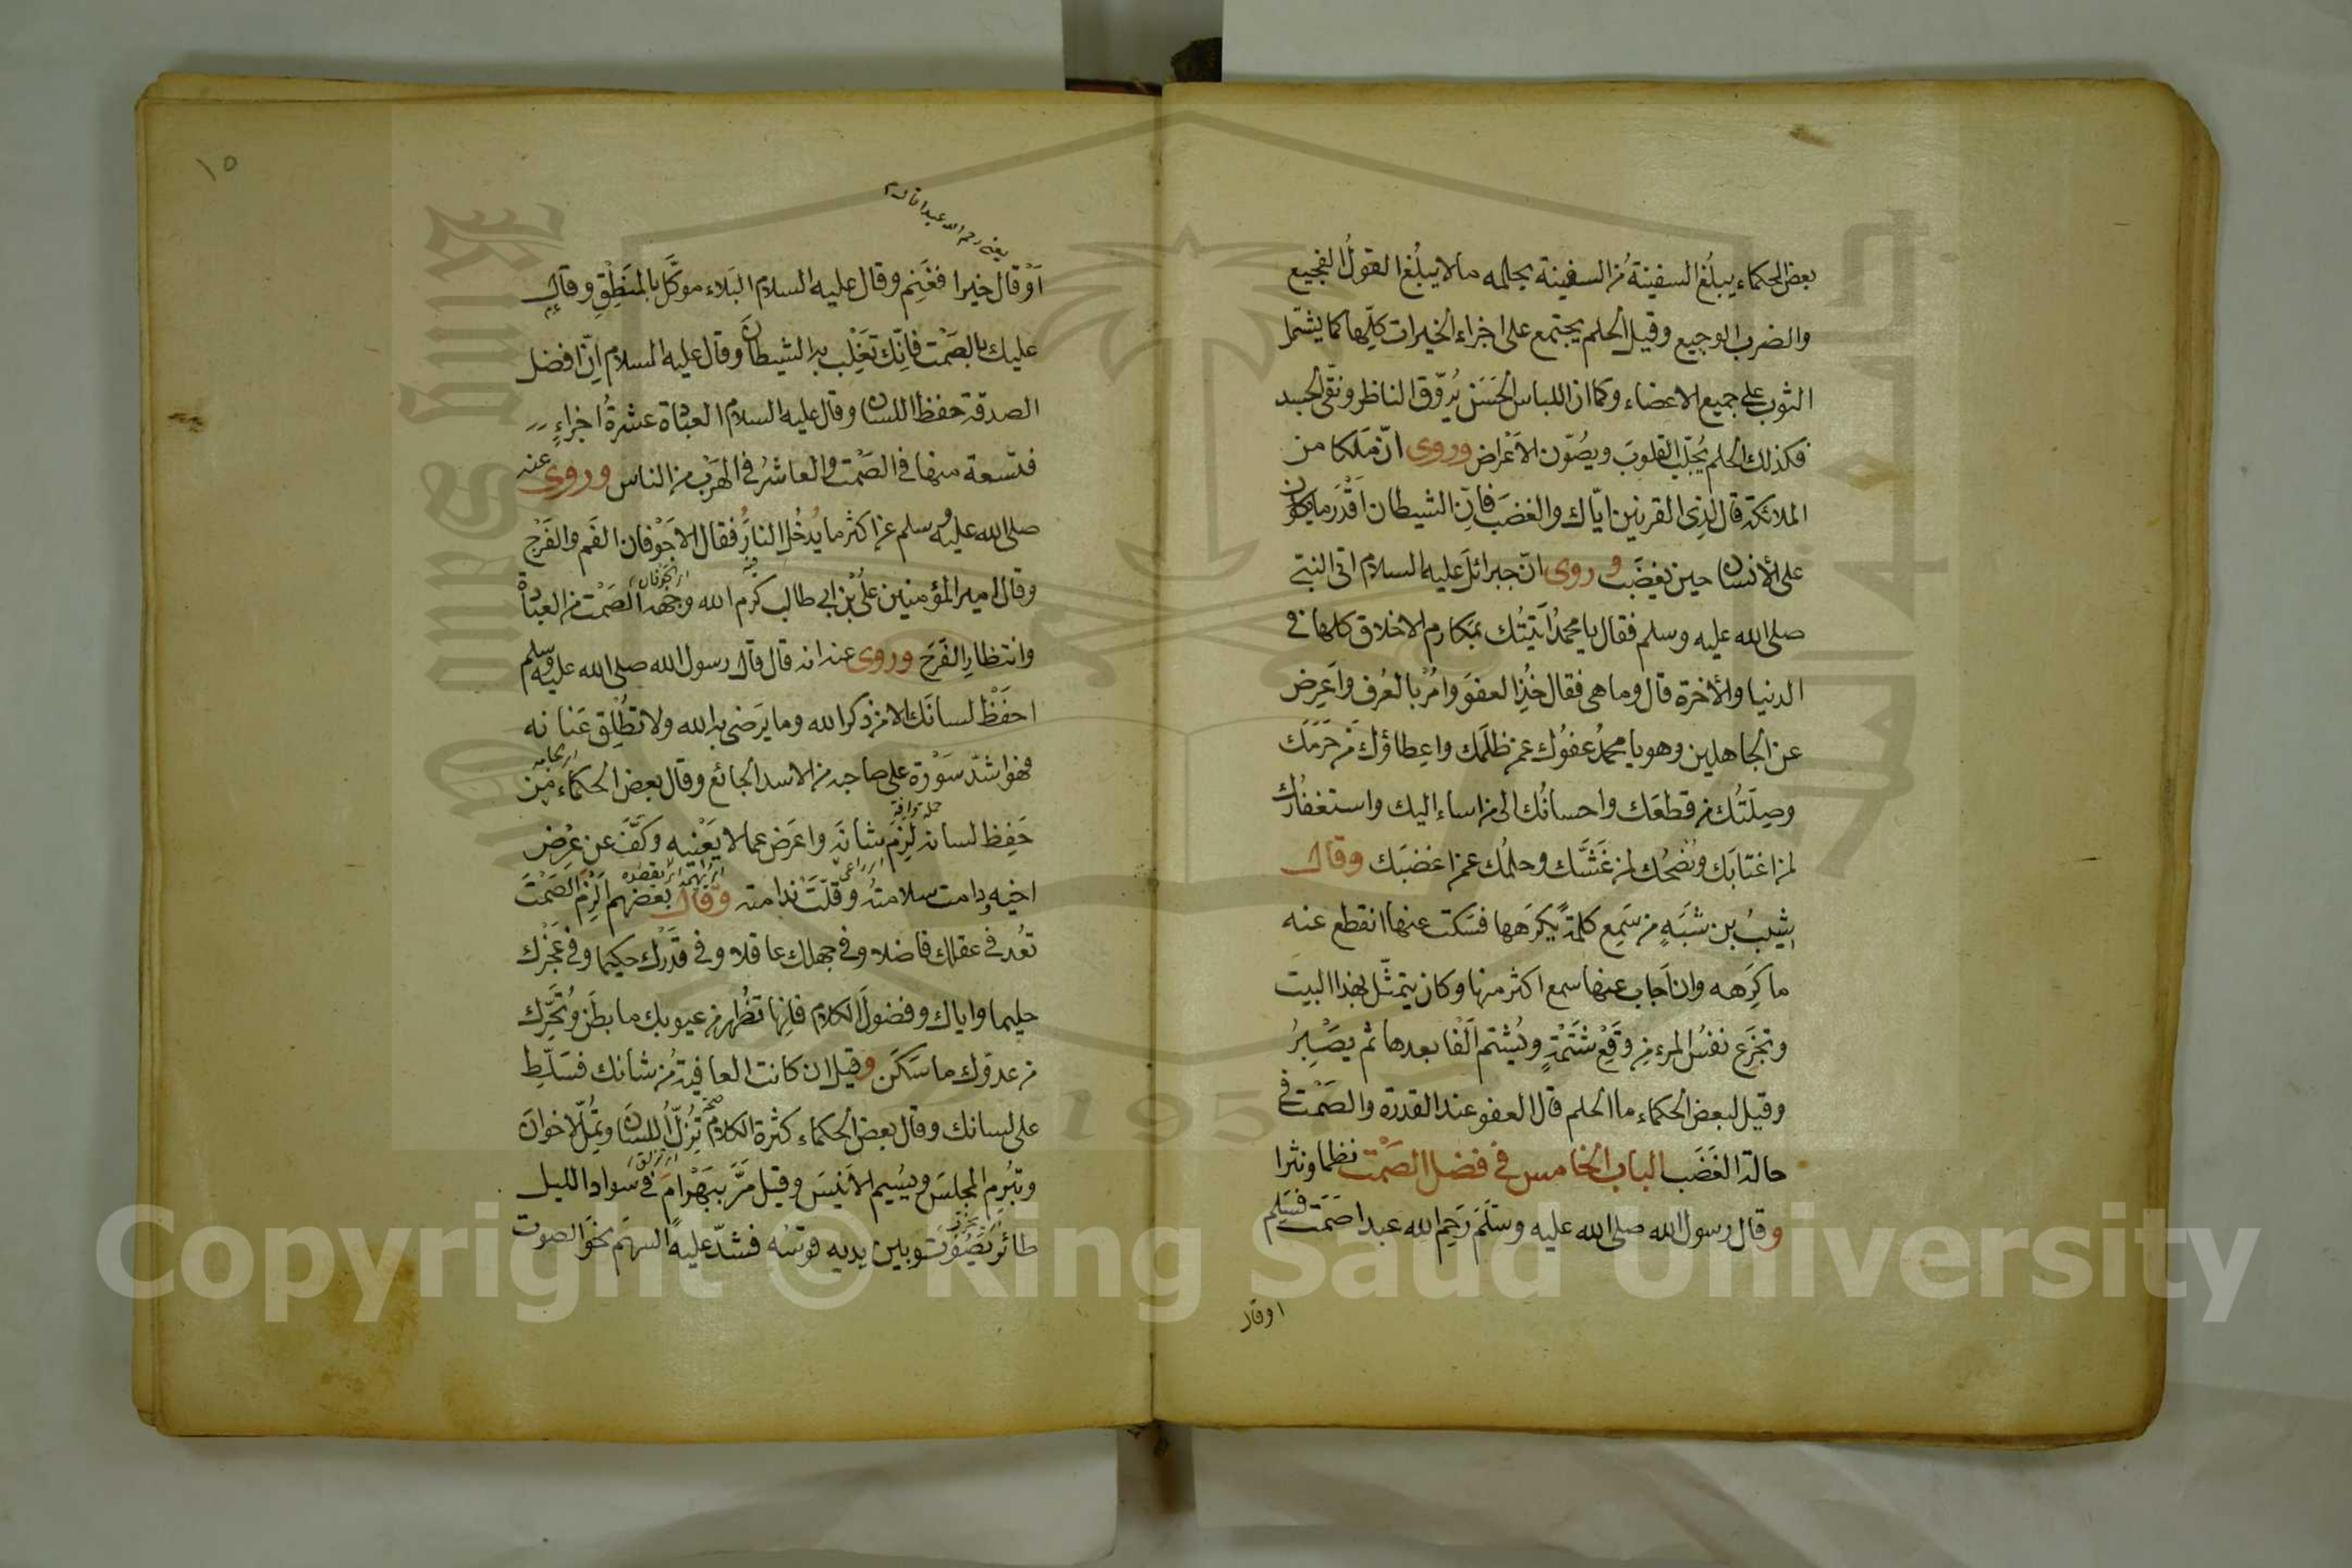 بعض الحكماء يبلُغ السفينة مُن السفينة بحلمه مالا يبلُغ القولُ الفجيع
والضرب الوجيع وقيل الحلم يجتمع على اجزاء الخيرات كلّها كما يشتمل
الثوب على جميع الاعضاء وكما ان اللباس الحَسَن يُروّق الناظر ونقّى الجسد
فكذلك الحلم يُجلّب القلوبَ ويصُوّن الاَعْراض وروى انّ مَلَكا من
الملائكة قال لذِى القرنين ايّاك والغضبَ فانّ الشيطان اَقْدَر ما يكون
على الأنسان حين يغضَب وروى انّ جبرائلَ عليه السلام اتى النبّى
صلى الله عليه وسلم فقال يا محمدُ اَتَيْتُك بمكارم الاخلاق كلها فى
الدنيا والأخرة قال وما هى فقال خُذِ العفوَ وامُرْ بالعُرف واَعرِض
عن الجاهلين وهو يا محمدُ عفوُك عمن ظلَمك واعِطاؤك من حَرَمَك
وصِلَتُك من قطعَك واحسانُك الى من اساء اليك واستغفارُك
لمن اغتابَك ونُصْحُك لمن غَشَّك وحلمُك عمن اغضبَك وقال
شيبُ بن شَبَهٍ من سَمِع كلمةً يكرَهها فسَكت عنها انقطع عنه
ما كرِهَه وان اَجاب عنها سمع اكثر منها وكان يتمثّل بهذا البيت
وتجزَع نفسُ المرء من وَقْع شَتْمةٍ ويُشتم اَلْفا بعدها ثم يَصْبِرُ
وقيل لبعض الحكماء ما الحلم قال العفو عند القدرة والصَمْت فى
حالة الغَضَب الباب الخامس فى فضل الصَمْت نظما ونثرا
وقال رسول الله صلى الله عليه وسَلَمَ رَحِم الله عبدا صَمَت فسَلِم
او قال
١٥
يعنى رحم الله عبدا قال
اَوْقال خيرا فغَنِم وقال عليه السلام البَلاء موكَّل بالمَنطِقِ وقال
عليك بالصَمْت فانّك تغَلِب به الشيطانَ وقال عليه السلام اِنّ افضل
الصدقة حفظ اللسان وقال عليه السلام العبادة عشرةُ اجزاءٍ
فتسعة منها فى الصَمْت والعاشرُ فى الهَرْب من الناس وروى عنه
صلى الله عليه وسلم عن اكثر ما يُدخُل النارَ فقال الاَجْوَفان الفَم والفَرْج
وقال امير المؤمنين علىُ بن ابى طالب كرم الله وجهه الصَمْت من العبادة
وانتظارِ الفَرَج وروى عنه انه قال قال رسول الله صلى الله عليه وسلم
احفَظْ لسانَك الا من ذكر الله وما يَرضى به الله ولا تطْلِق عَنانه
فهو اشدّ سَوْرة على صاحبه من الاسد الجائع وقال بعض الحكماء مَن
حَفِظ لسانه لَزِمَ شانَه واعَرض عما لا يَعْنيه وكَفَّ عن عِرْض
اخيه دامت سلامته وقلّتَ ندامته وقال بعضهم اَلْزِمَ الصَمْتَ
تعُد فى عقلك فاضلا وفى جهلك عاقلا وفى قدْرك حكيما وفى عَجْزك
حليما واياك وفضولَ الكلام فانها تظُهر من عيوبك ما بطَن وتُحَرِّك
من عدوّك ما سَكَن وقيل ان كانت العافيةُ من شانك فسَلّط
على لسانك وقال بعض الحكماء كثرة الكلام تِزُلّ اللسانَ وتمُلّ الاخوانَ
وتبُرِم المجلسَ ويسُيم الاَنيسَ وقيل مَرَّ ببَهْرامَ فى سواد الليل
طائر يَصُوْت وبين يديه قوسُه فشدّ عليه السهَمَ نحَوَ الصوت
Copyright © King Saud University
King Saud University
1957